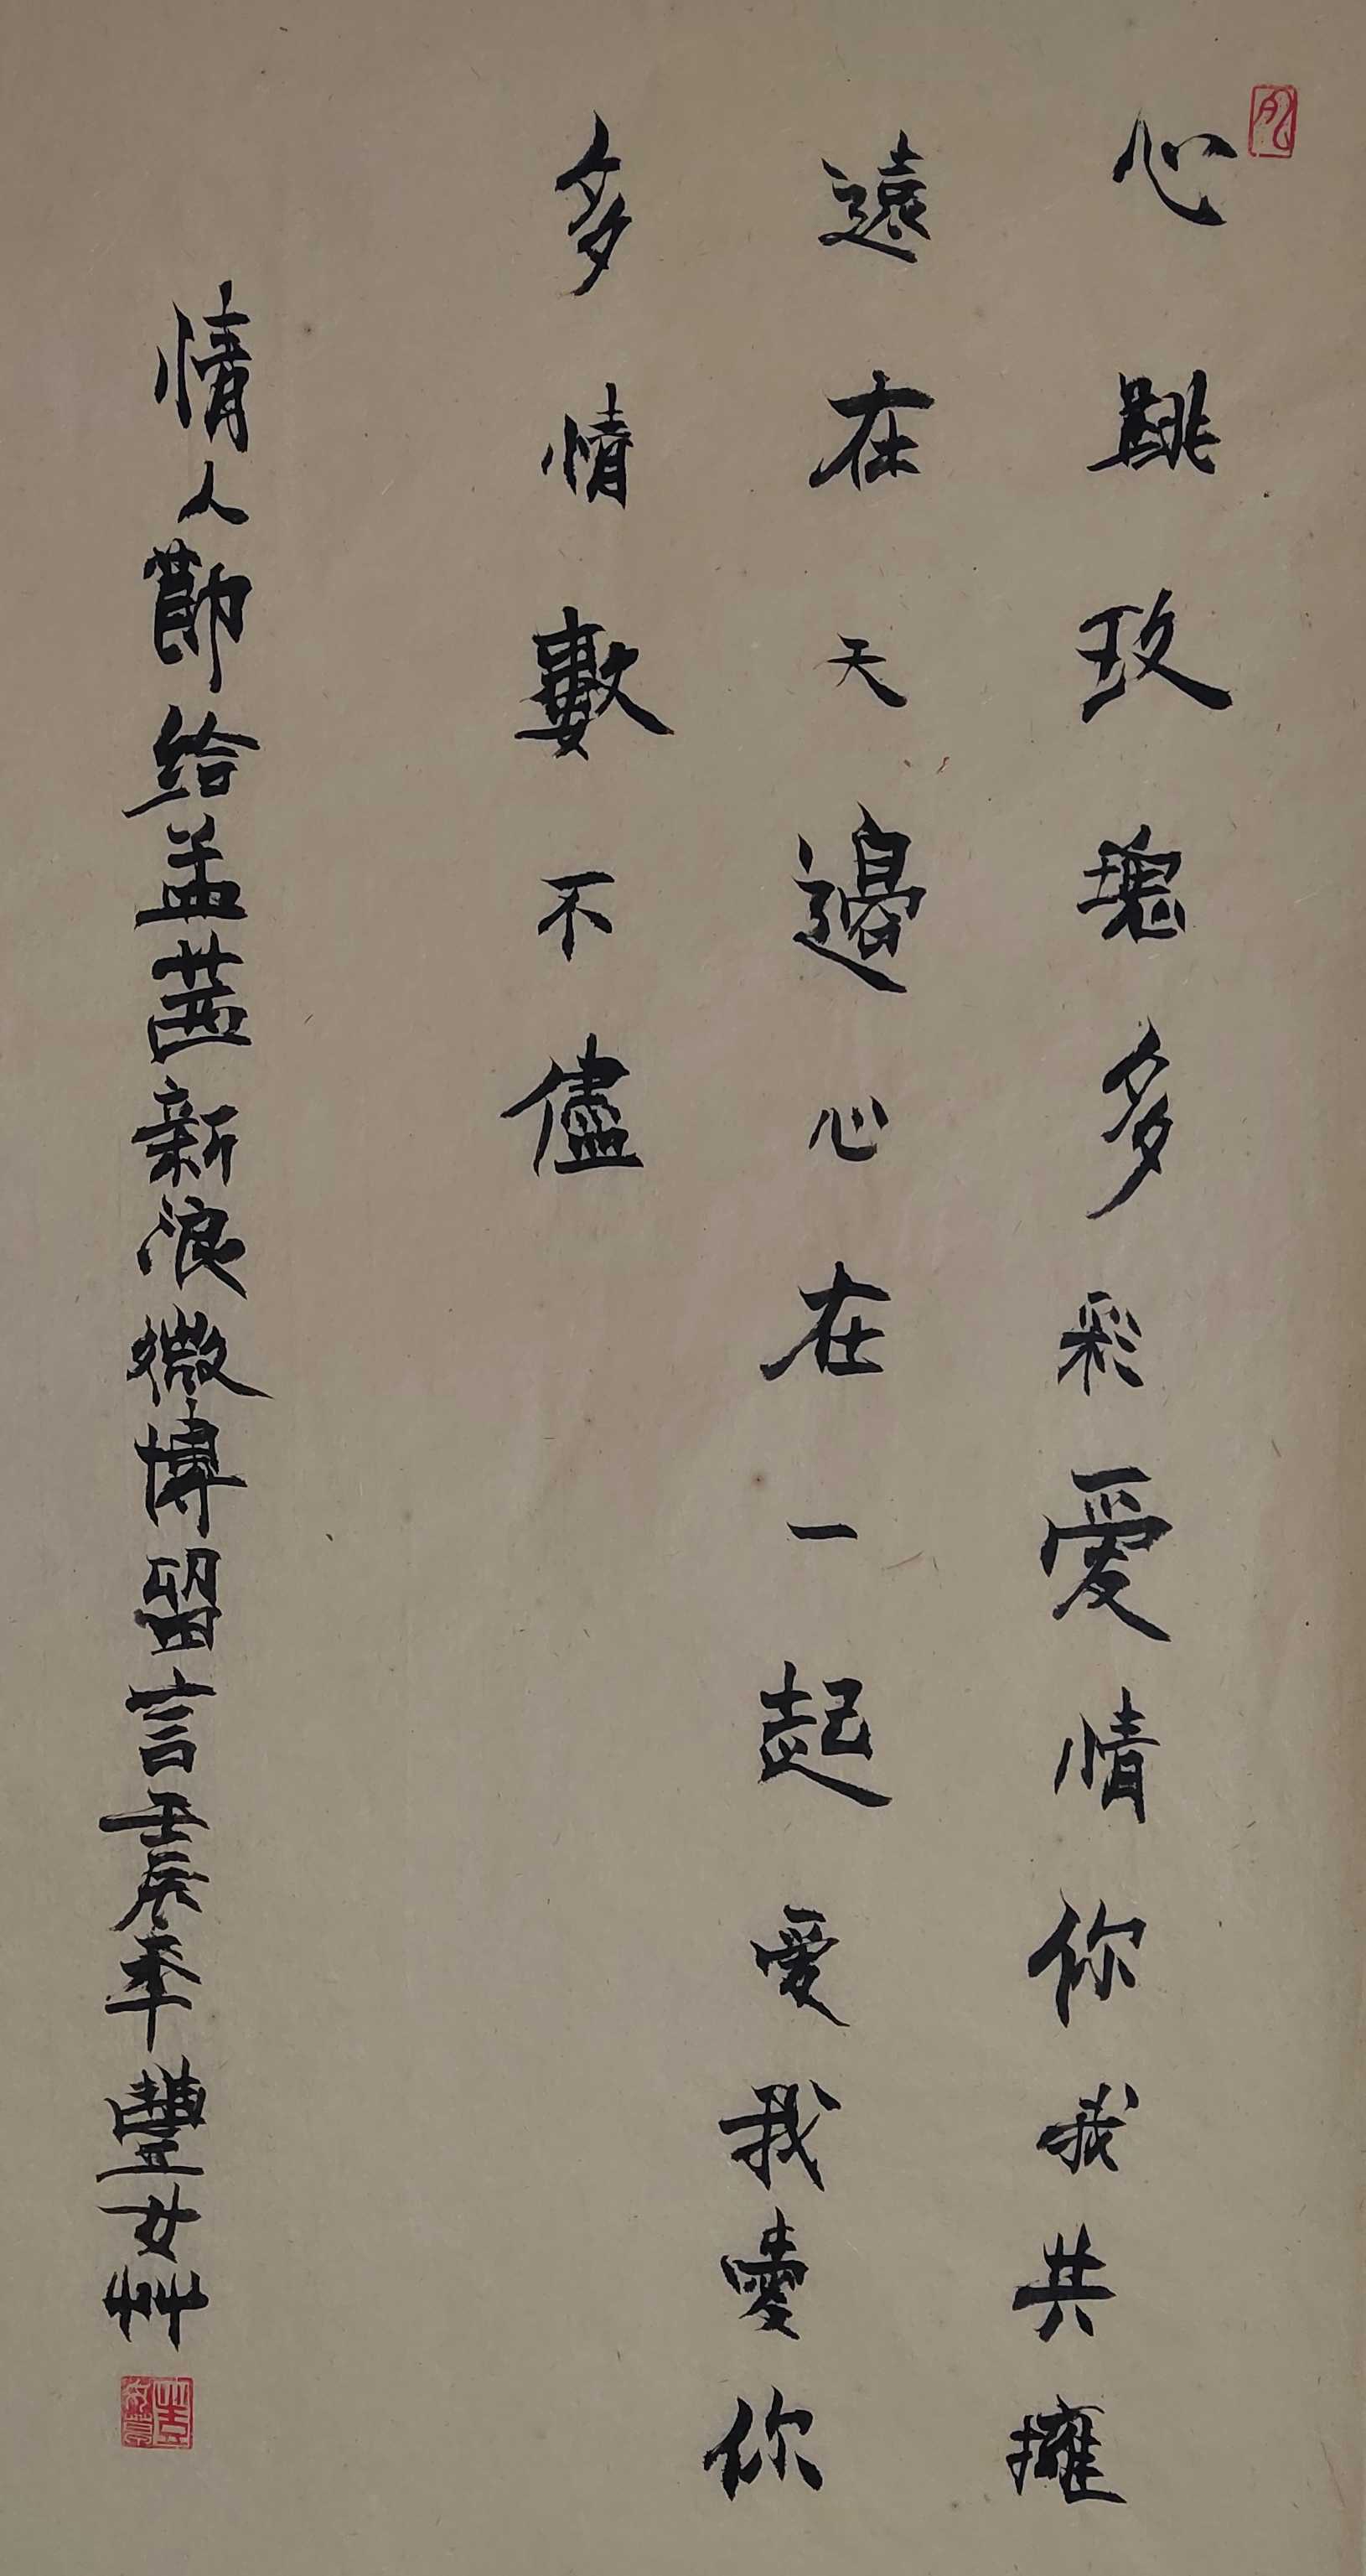 心跳玫瑰多彩愛情你我共擁
遠在天邊心在一起愛我愛你
多情數不儘
情人節给孟茜新浪微博留言壬辰年豐女艸